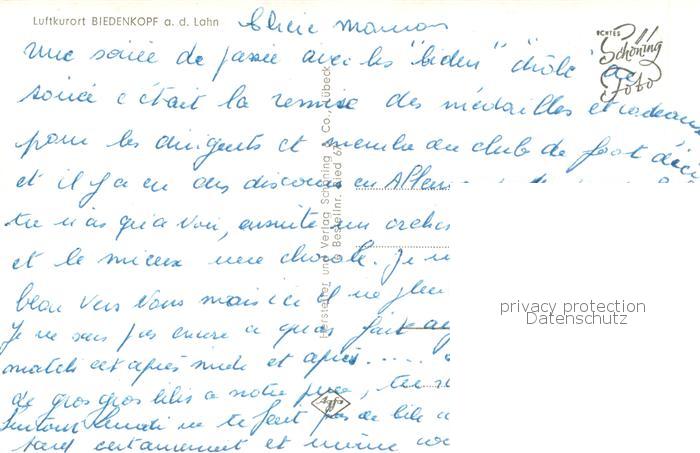 Luftkurort BIEDENKOPF a. d. Lahn
maman
ECHTES
Schöning
Foto
Une soirée de passée avec les "biden" drôle de
soirée c'était la remise des médailles et cadeaux
pour les dirigents et membre du club de foot d'ici
et il y a eu des discours en Allem
tu n'as qu'a voir, ensuite un orches
et le mieux une chorale. Je
beau vers vous mais ici il ne pleu
Je ne sais pas encore a quoi fait
match cet après midi et après.....
de gros gros bibis a notre puce, tu
Surtout Lundi ne te fait pas de bile
tard certainement et même
Hersteller und Verlag Schöning & Co., Lübeck
Bestellnr. Bied
Agfa
privacy protection
Datenschutz